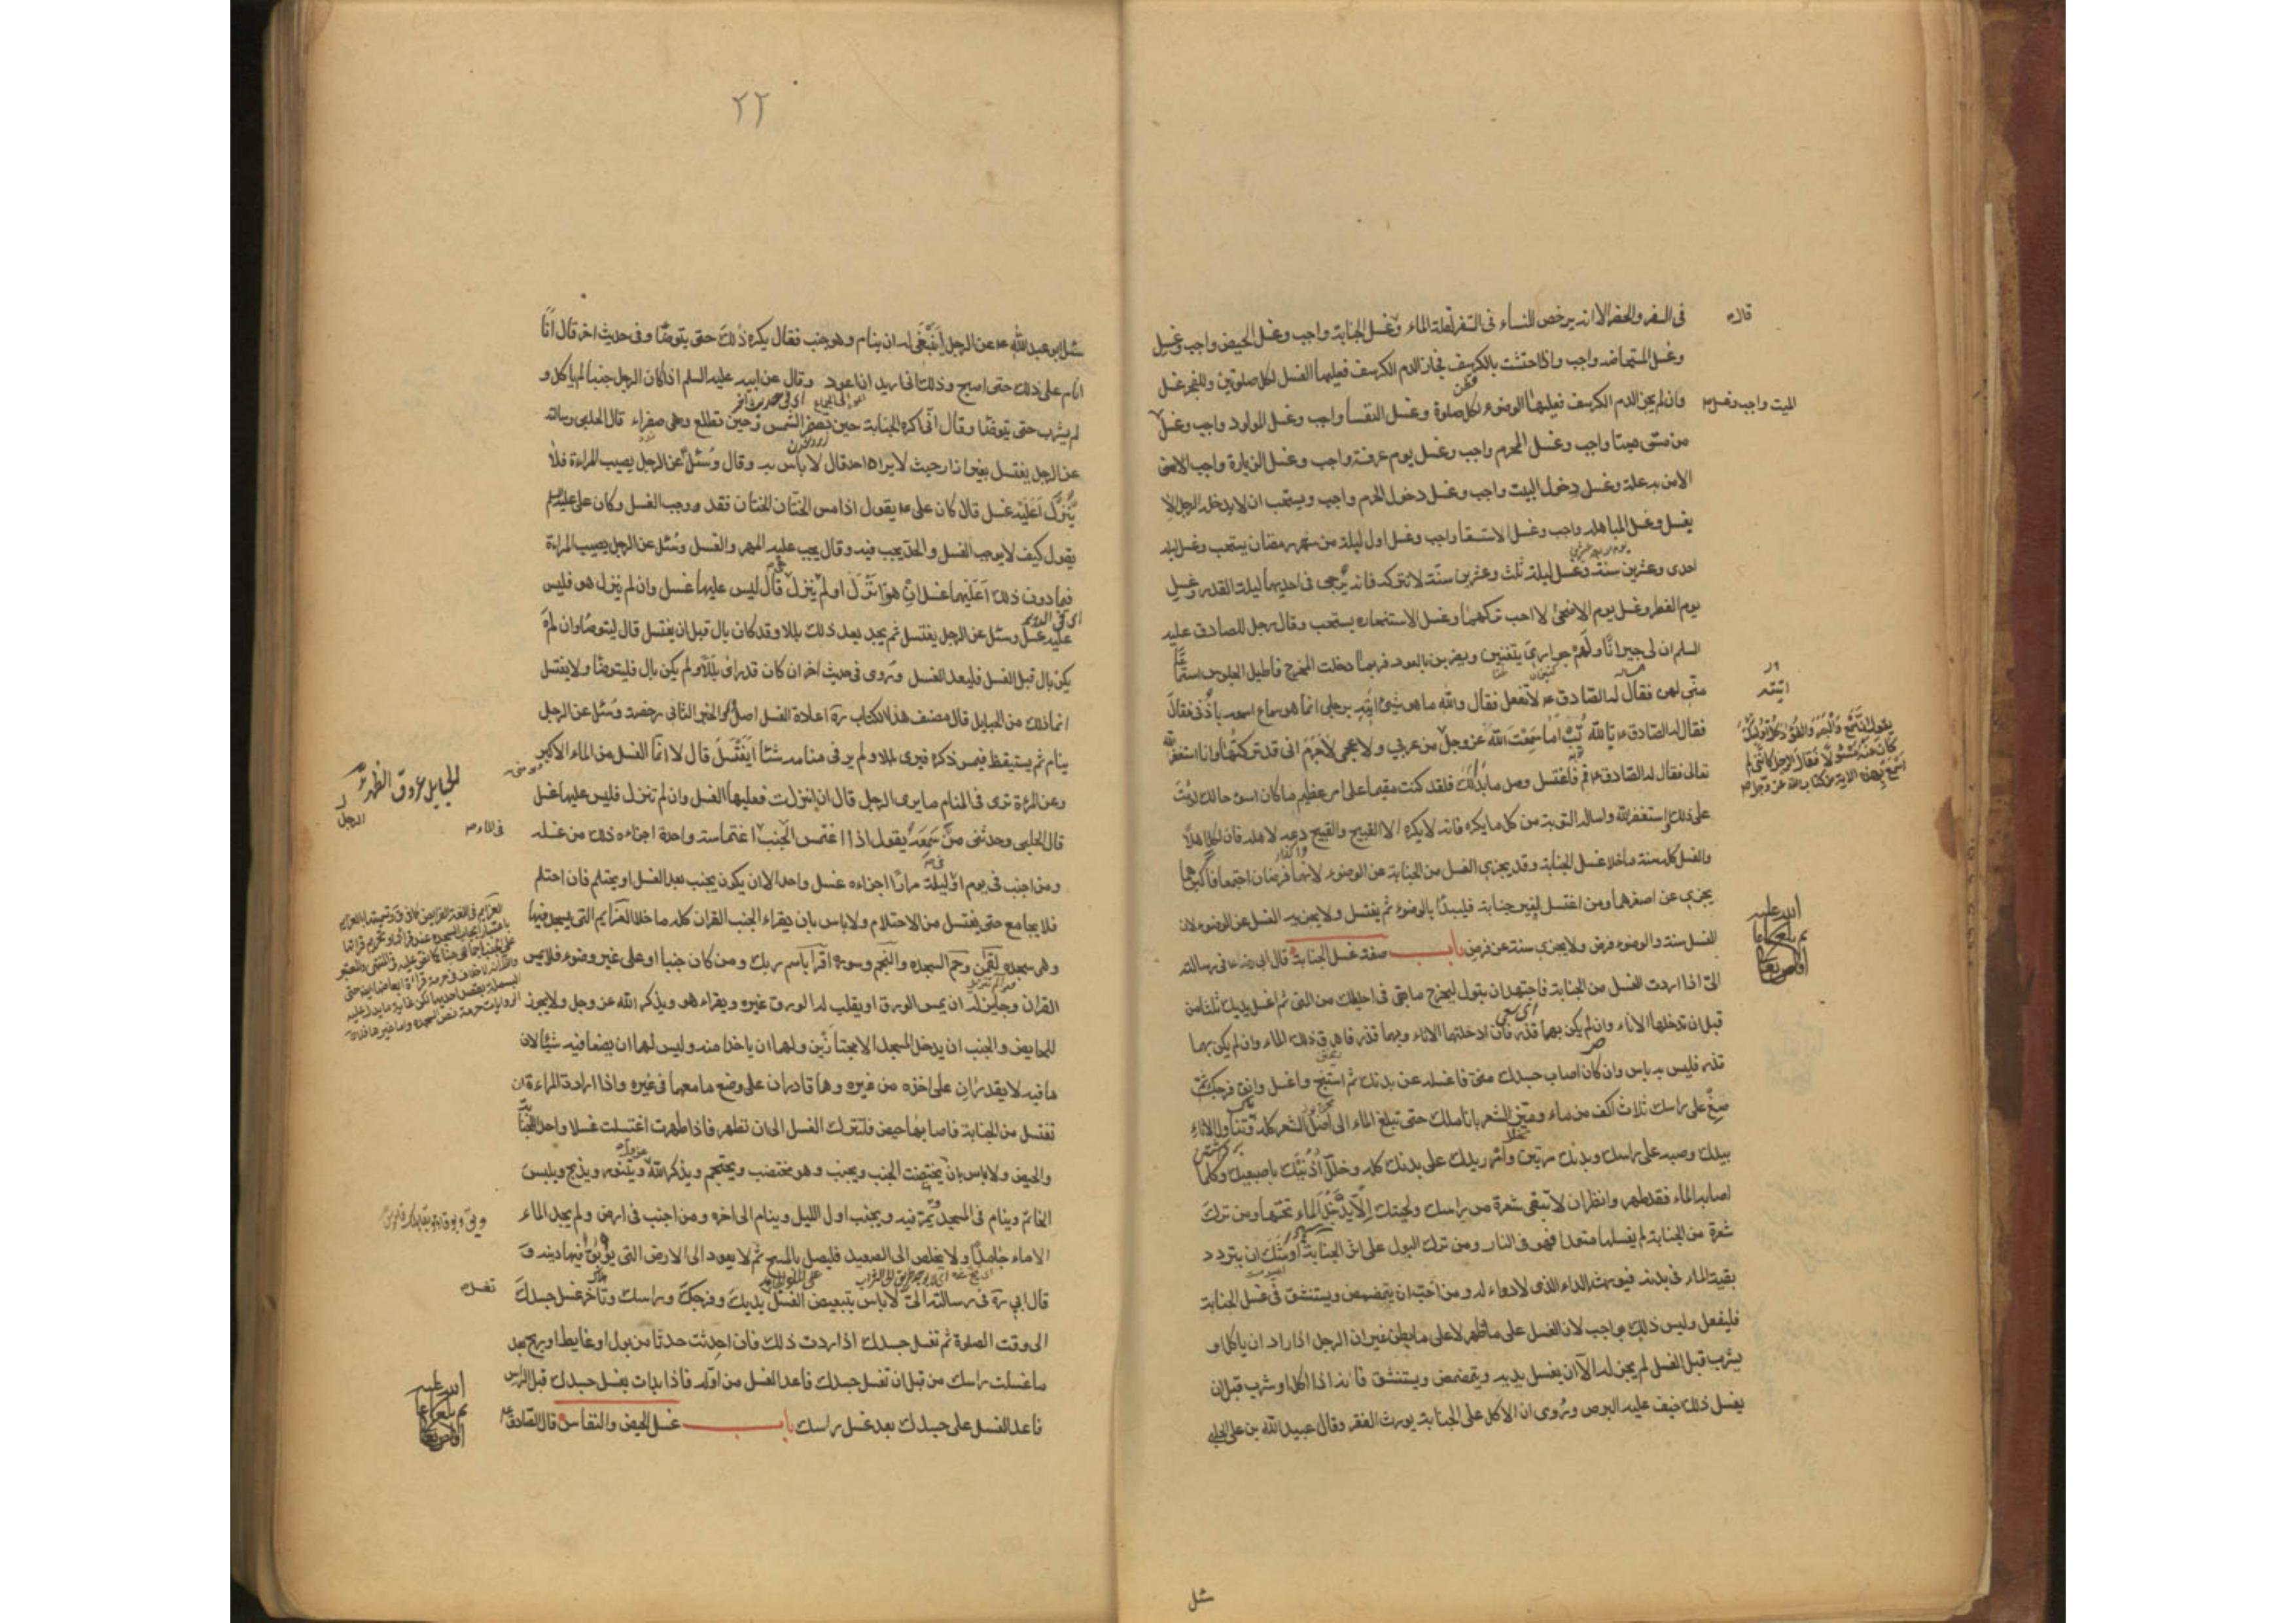 فى السفر والحضر الا انه يرخص للنساء فى السفر لعلة الماء وغسل الجنابة واجب وغسل الحيض واجب وغسل
قال ع
وغسل المستحاضه واجب واذا احتشت بالكرسف فجاز الدم الكرسف فعليها الغسل لكل صلوتين وللفجر غسل
وان لم يجز الدم الكرسف فعليها الوضوء لكل صلوة وغسل النفسا واجب وغسل المولود واجب وغسل
الميت واجب وغسل
من مس ميتا واجب وغسل المحرم واجب وغسل يوم عرفة واجب وغسل الزيارة واجب الا من
الا من به علة وغسل دخول البيت واجب وغسل دخول الحرم واجب ويستحب ان لا يدخله الرجل الا
بغسل وغسل المباهله واجب وغسل الاستسقا واجب وغسل اول ليلة من شهر رمضان يستحب وغسل ليلة
احدى وعشرين سنة وغسل ليلة ثلث وعشرين سنة لا تتركه فانه يرجى فى احديهما ليلة القدر وغسل
يوم الفطر وغسل يوم الاضحى لا احب تركهما وغسل الاستخاره يستحب وقال رجل للصادق عليه
السلم ان لى جيرانا ولهم جوار يتغنين ويضربن بالعود فربما دخلت المخرج فاطيل الجلوس استماعا
منى لهن فقال له الصادق ع لا تفعل فقال والله ما هو شىء اتيه برجلى انما هو سماع اسمعه باذنى فقال
فقال له الصادق ع تا لله انت اما سمعت الله عز وجل من عربي ولا عجمى لا جرم انى قد تركتها وانا استغفر الله
يقول ان السمع والبصر والفؤاد كل اولئك
كان عنه مسئولا فقال الرجل كاننى لم
اسمع بهذه الاية من كتاب الله عز وجل
تعالى فقال له الصادق ع قم فاغتسل وصل ما بدا لك فلقد كنت مقيما على امر عظيم ما كان اسوء حالك لو مت
على ذلك استغفر الله واساله التوبة من كل ما يكره فانه لا يكره الا القبيح والقبيح دعه لاهله فان لكل اهلا
والغسل كله سنة ما خلا غسل الجنابة وقد يجزي الغسل من الجنابة عن الوضوء لانهما فرضان اجتمعا فاكبرهما
يجزي عن اصغرهما ومن اغتسل لغير جنابة فليبدا بالوضوء ثم يغتسل ولا يجزيه الغسل عن الوضوء لان
الغسل سنة والوضوء فرض ولا يجزى سنة عن فرض باب صفة غسل الجنابة قال ابى رضى الله فى رسالته
الىّ اذا اردت الغسل من الجنابة فاجتهد ان تبول ليخرج ما بقى فى احليلك من المنى ثم اغسل يديك ثلثا من
قبل ان تدخلها الاناء وان لم يكن بهما قذر فان ادخلتها الاناء وبهما قذر فاهرق ذلك الماء وان لم يكن بهما
قذر فليس به باس وان كان اصاب جسدك منى فاغسله عن بدنك ثم استنج واغسل وانق فرجك ثم
ضع على راسك ثلاث اكف من ماء وميز الشعر باناملك حتى تبلغ الماء الى اصل الشعر كله وتناول الاناء
بيدك وصبه على راسك وبدنك مرتين وامرر يدك على بدنك كله وخلل اذنيك باصبعيك وكلما
اصابه الماء فقد طهر وانظر ان لا تبقى شعرة من راسك ولحيتك الا يدخل الماء تحتها ومن ترك
شعرة من الجنابة لم يغسلها متعمدا فهو فى النار ومن ترك البول على اثر الجنابة اوشك ان يتردد
بقية الماء فى بدنه فيورثه الداء الذى لا دواء له ومن احب ان يتمضمض ويستنشق فى غسل الجنابة
فليفعل وليس ذلك بواجب لان الغسل على ما ظهر لا على ما بطن غير ان الرجل اذا اراد ان ياكل او
يشرب قبل الغسل لم يجز له الا ان يغسل يديه ويتمضمض ويستنشق فانه اذا اكل او شرب قبل ان
يفعل ذلك خيف عليه البرص وروى ان الاكل على الجنابة يورث الفقر وقال عبيد الله بن على الحلبى
سئل
٢٢
سئل ابو عبد الله ع عن الرجل اينبغى له ان ينام وهو جنب فقال يكره ذلك حتى يتوضا وفى حديث اخر قال انا
انام على ذلك حتى اصبح وذلك انى اريد ان اعود وقال عن ابيه عليه السلم اذا كان الرجل جنبا لم ياكل و
لم يشرب حتى يتوضا وقال انى اكره الجنابة حين تصفر الشمس وحين تطلع وهى صفراء قال الحلبى وسالته
عن الرجل يغتسل بغير ازار حيث لا يراه احد قال لا باس به وقال وسئل عن الرجل يصيب المراءة فلا
ينزل اعليه غسل قال كان على ع يقول اذا مس الختان الختان فقد وجب الغسل وكان على عليه السلم
يقول كيف لا يوجب الغسل والحد يجب فيه وقال يجب عليه المهر والغسل وسئل عن الرجل يصيب المراءة
فيما دون ذلك اعليهما غسل ان هو انزل او لم ينزل قال ليس عليها غسل وان لم ينزل هو فليس
عليه غسل وسئل عن الرجل يغتسل ثم يجد بعد ذلك بللا وقد كان بال قبل ان يغتسل قال ليتوضا وان لم
يكن بال قبل الغسل فليعد الغسل وروى فى حديث اخر ان كان قد راى بللا ولم يكن بال فليتوضا ولا يغتسل
انما ذلك من الحبايل قال مصنف هذا الكتاب ره اعادة الغسل اصل والخبر الثانى رخصة وسئل عن الرجل
ينام ثم يستيقظ فيمس ذكره فيرى بللا ولم ير فى منامه شيئا ايغتسل قال لا انما الغسل من الماء الاكبر
الحبايل عروق الظهر
وعن المرءة ترى فى المنام ما يرى الرجل قال ان انزلت فعليها الغسل وان لم تنزل فليس عليها غسل
الرجل
قال الحلبى وحدثنى من سمعه يقول اذا اغتمس الجنب اغتماسة واحدة اجزاه ذلك من غسله
فى الماء
ومن اجنب فى يوم او ليلة مرارا اجزاه غسل واحد الا ان يكون يجنب بعد الغسل او يحتلم فان احتلم
فلا يجامع حتى يغتسل من الاحتلام ولا باس بان يقراء الجنب القران كله ما خلا العزايم التى يسجد فيها
وهى سجده لقمن وحم السجده والنجم وسورة اقرا باسم ربك ومن كان جنبا او على غير وضوء فلا يمس
القران وجايز له ان يمس الورق او يقلب له الورق غيره ويقراء هو ويذكر الله عز وجل ولا يجوز
للحايض والجنب ان يدخلا المسجد الا مجتازين ولهما ان ياخذا منه وليس لهما ان يضعا فيه شيئا لان
ما فيه لا يقدران على اخذه من غيره وهما قادران على وضع ما معهما فى غيره واذا ارادت المراءة ان
تغتسل من الجنابة فاصابها حيض فلتترك الغسل الى ان تطهر فاذا طهرت اغتسلت غسلا واحدا للجنابة
والحيض ولا باس بان يختضب الجنب ويجنب وهو مختضب ويحتجم ويذكر الله ويتنور ويذبح ويلبس
الخاتم وينام فى المسجد ويمر فيه ويجنب اول الليل وينام الى اخره ومن اجنب فى ارض ولم يجد الماء
الا ماء جامدا ولا يخلص الى الصعيد فليصل بالمسح ثم لا يعود الى الارض التى يوبق فيها دينه و
قال ابى ره فى رسالته الىّ لا باس بتبعيض الغسل يديك وفرجك وراسك وتاخر غسل جسدك
تغسل
الى وقت الصلوة ثم تغسل جسدك اذا اردت ذلك فان احدثت حدثا من بول او غايط او ريح بعد
ما غسلت راسك من قبل ان تغسل جسدك فاعد الغسل من اوله فاذا بدات بغسل جسدك قبل الراس
فاعد الغسل على جسدك بعد غسل راسك باب غسل الحيض والنفاس قال الصادق ع